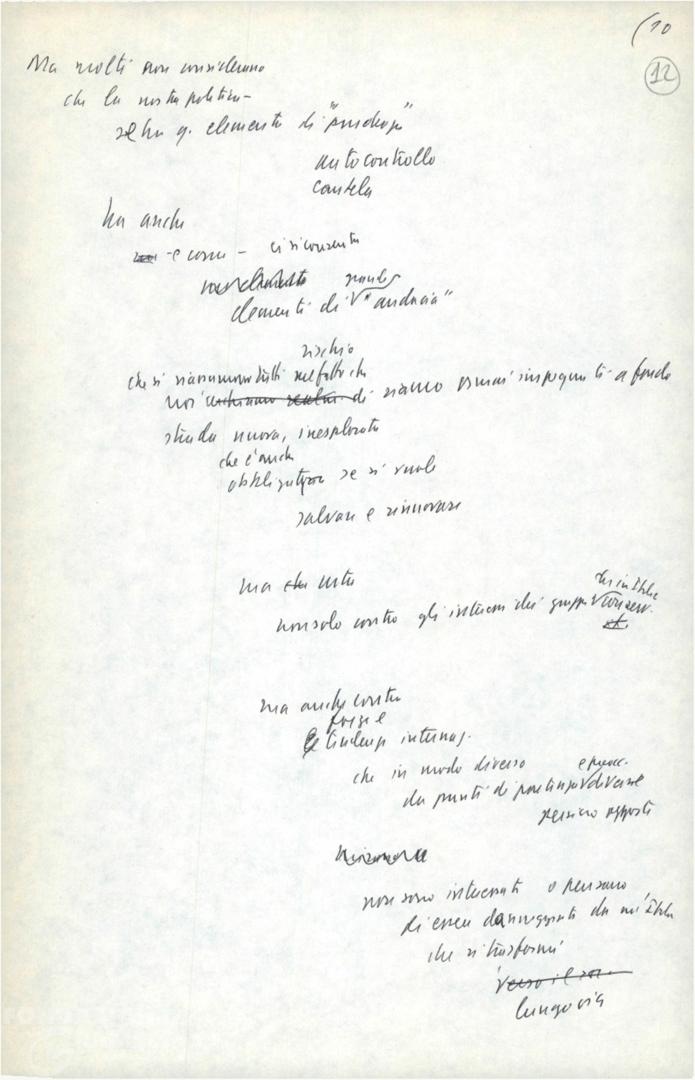 (10
12
Ma molti non considerano
che la nostra politica -
se ha q. elementi di "prudenza"
autocontrollo
cautela
ha anche
- e come - ci si consenta
grandi
elementi di "audacia"
rischio
che si riassumono tutti nel fatto che
noi siamo ormai impegnati a fondo
strada nuova, inesplorata
che è anche
obbligatoria se si vuole
salvare e rinnovare
ma urta
che in Italia
non solo contro gli interessi dei gruppi conserv.
ma anche contro
forze e
tendenze internaz.
che in modo diverso
e preocc.
da punti di partenza diverse
persino opposti
non sono interessati o pensano
di essere danneggiati da un'Italia
che si trasformi
verso il
lungo via